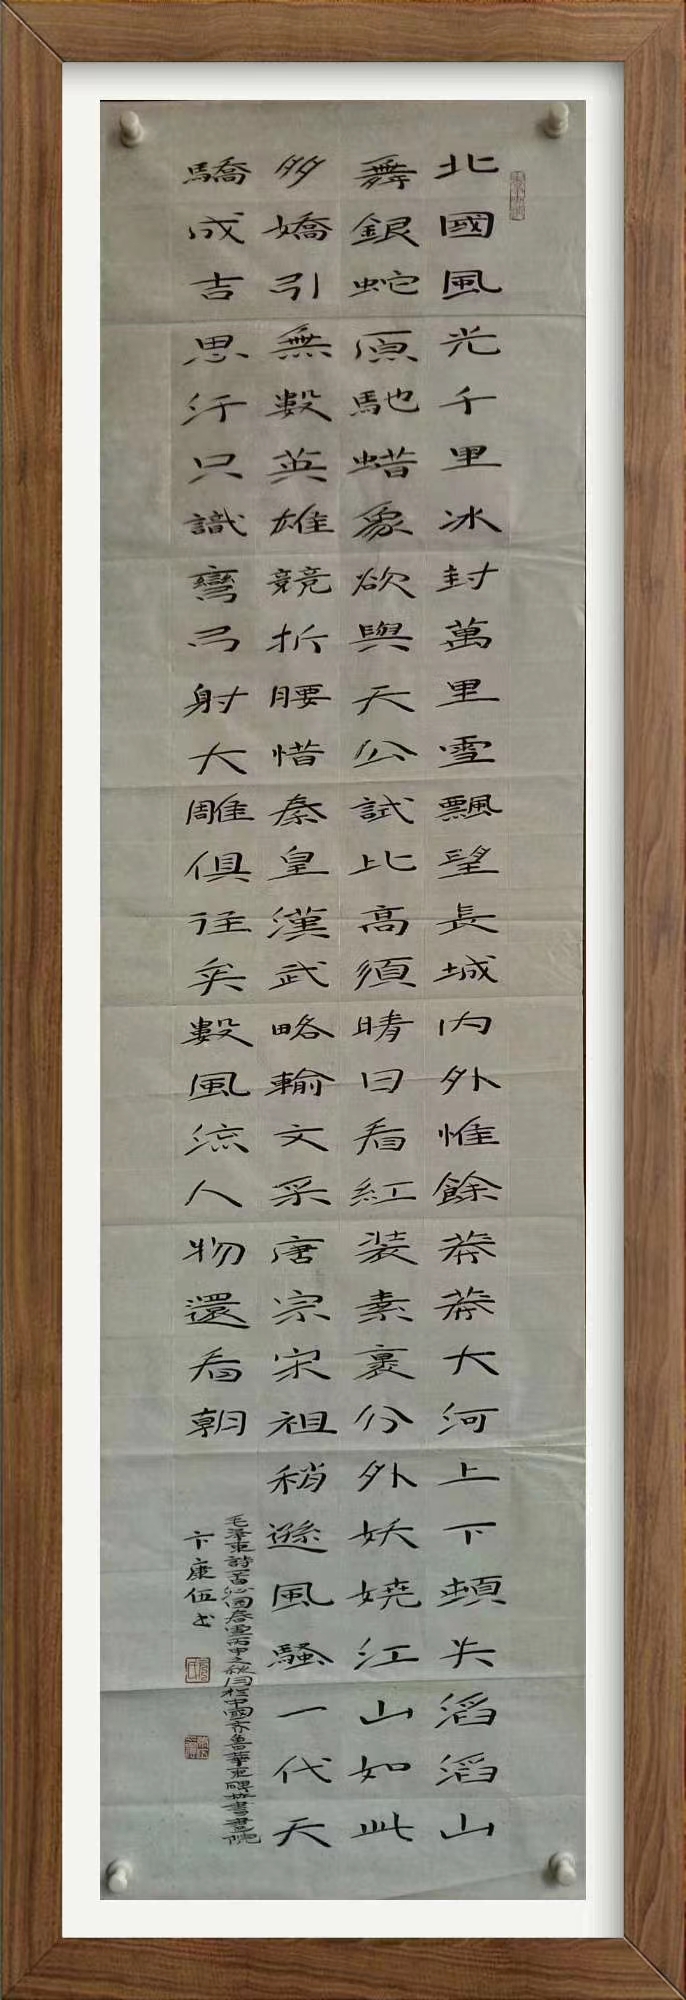 北國風光千里冰封萬里雪飄望長城內外惟餘莽莽大河上下頓失滔滔山
舞銀蛇原馳蜡象欲與天公試比高須晴日看紅裝素裹分外妖嬈江山如此
多嬌引無數英雄競折腰惜秦皇漢武略輸文采唐宗宋祖稍遜風騷一代天
驕成吉思汗只識彎弓射大雕俱往矣數風流人物還看朝
毛澤東詩一首沁園春雪丙申之秋於中國齊魯華東碑林書畫院
卞康伍书